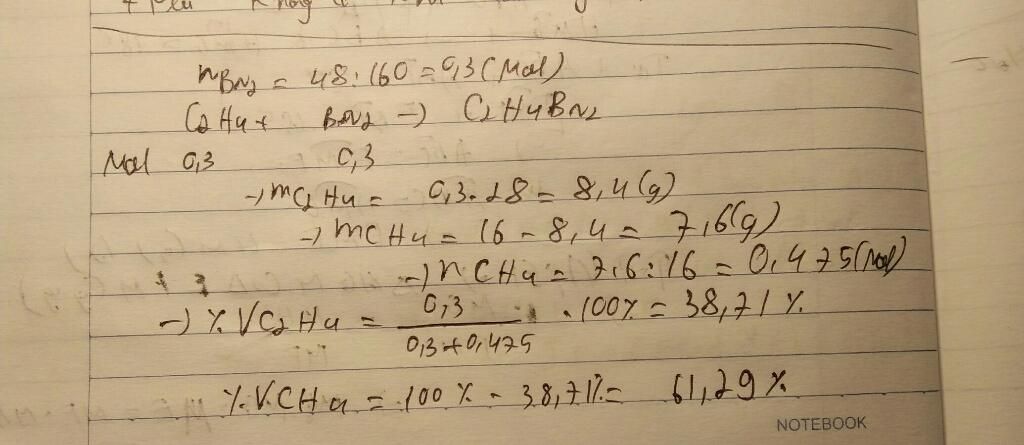 nBr2 = 48 : 160 = 0,3 (Mol)
C2H4 + Br2 → C2H4Br2
Mol 0,3 0,3
→ mC2H4 = 0,3 . 28 = 8,4 (g)
→ mCH4 = 16 - 8,4 = 7,6 (g)
→ nCH4 = 7,6 : 16 = 0,475 (Mol)
→ % VC2H4 = 0,3 / 0,3 + 0,475 . 100% = 38,71 %
% VCH4 = 100 % - 38,71% = 61,29 %
NOTEBOOK